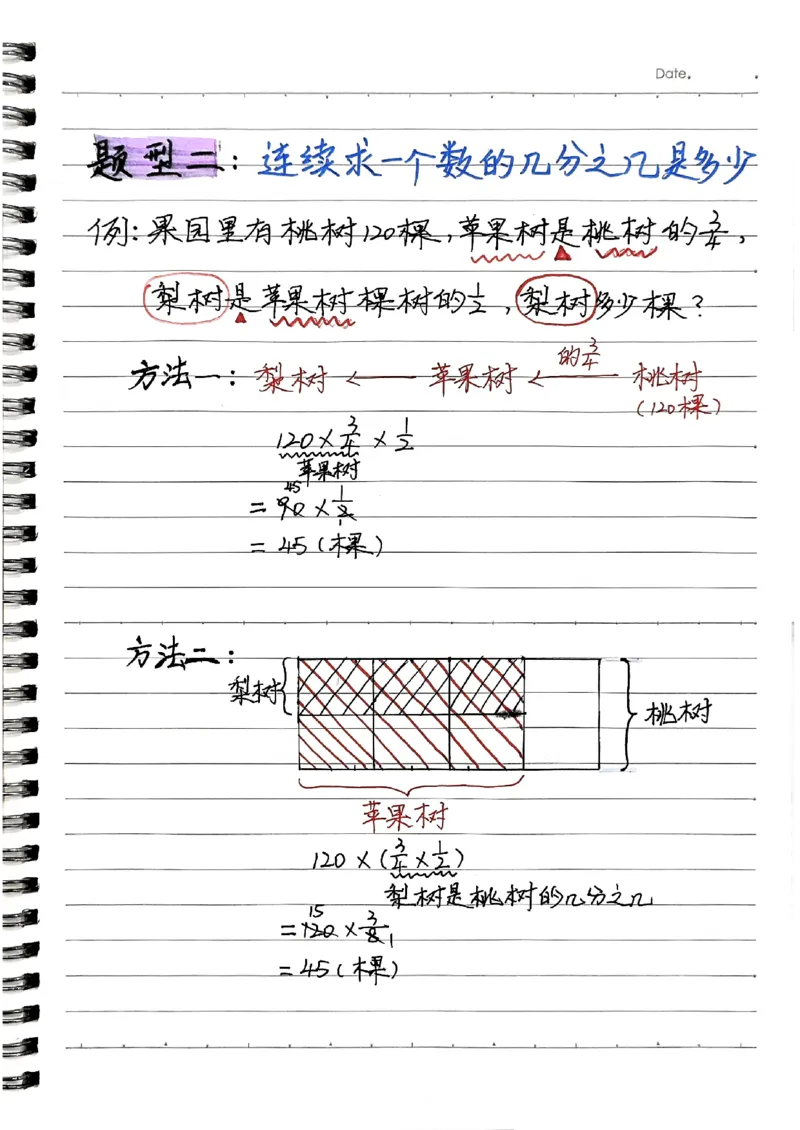 Date.
题型二：连续求一个数的几分之几是多少
例：果园里有桃树120棵，苹果树是桃树的3/4，
梨树是苹果树棵树的1/2，梨树多少棵？
方法一：梨树 ← 苹果树 ←的3/4 桃树
(120棵)
120×3/4×1/2
苹果树
45
=90×1/2
1
=45(棵)
方法二：
梨树
桃树
苹果树
120×(3/4×1/2)
梨树是桃树的几分之几
15
=120×3/8
1
=45(棵)